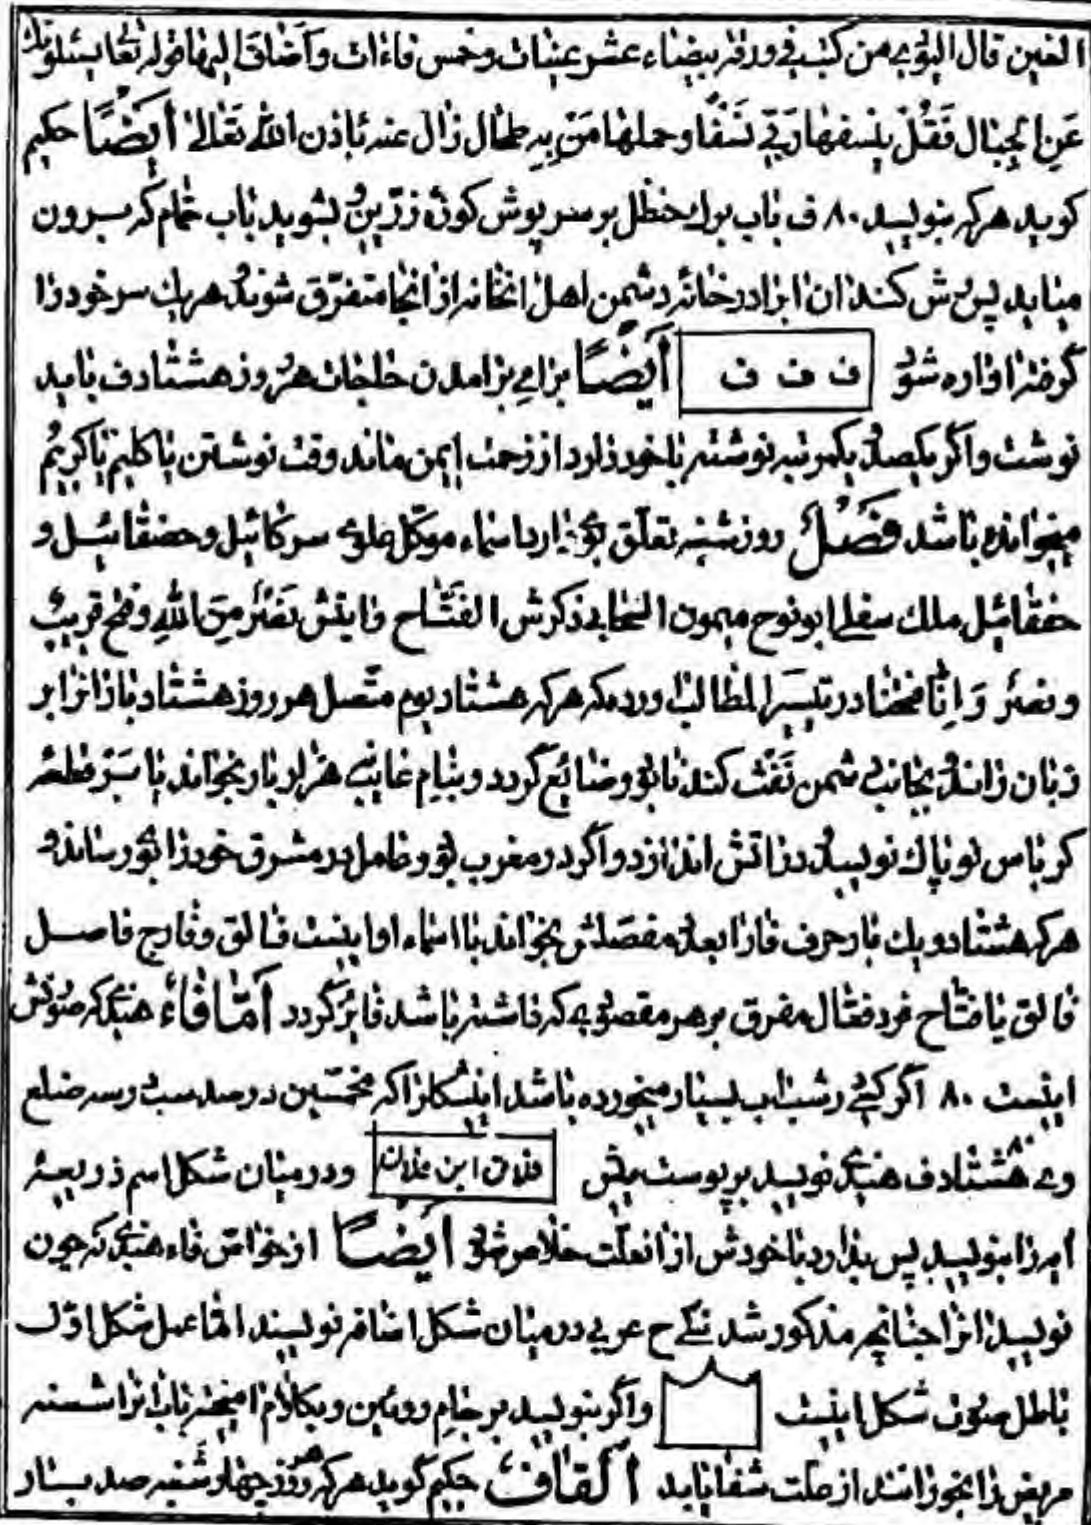 العین قال البونی من کتب فی ورقة بیضاء عشر عینات وخمس فاءات واضاف الیها قوله تعالی یسئلونک
عَنِ الجِبٰال فَقُلْ یَنسفها رَبّی نَسْفًا وحملها مَنْ بِهِ طحال زال عنه باذن الله تَعٰالیٰ أیضًا حکیم
کوید هرکه بنویسد ۸۰ ف باب برک حنظل بر سرپوش کوزه زرّین و بشوید باب حمام که بیرون
میاید پس ش کند ان ابرا در خانهٔ دشمن اهل انخانه از انجا متفرّق شوند و هریك سر خود را
گرفته اواره شود ف ف ف أیضًا برای برامدن حاجات هر روز هشتاد ف باید
نوشت واگر یکصد و یکمرتبه نوشته باخود دارد از زحمت ایمن ماند وقت نوشتن یاکلیم یاکریمُ
میخوانده باشد فَصْلٌ روز شنبه تعلّق باسماء موکّل علوی سرکائیل و حضقائیل و
حفقائیل ملك سفلی ابونوح میمون السحابی ذکرش الفَتّاح وایتش نَصْرٌ مِنَ اللهِ وفتح قریبٌ
و نصرٌ وَ اِنّا فتحنا در تیسیر المطالب اورده که هرکه هشتاد یوم متّصل هر روز هشتاد بار انرا بر
زبان راند و بجانب دشمن نَفْث کند نابود وضایع گردد و بنام غایبی هزار بار بخواند یا بَرْ قطعهٔ
کرباس نو پاك نویسد و در اتش اندازد و اگر در مغرب بود و عامل در مشرق خود را باو رساند و
هرکه هشتاد ویك بار حرف فا را بعد مفصّلش بخواند با اسماء او اینست فالق وفارج فاصل
فالق یا فتّاح فرد فعّال مفرق بر هر مقصودی که داشته باشد فایز گردد أمّا فٰاء هندی که صورتش
اینست ۸۰ اگر کسی شراب بسیار میخورده باشد اینشکل را که مخمّسین در و سه ضلع
وی هشتاد ف هندی نویسد بر پوست میش فلان ابن فلان ودرمیان شکل اسم ذریعهٔ
ام را بنویسد پس بدارد باخودش از انعلّت خلاص شود أیضًا ازخواصّ فاء هندی که چون
نویسد انرا چنانچه مذکور شد ح عربی درمیان شکل اضافه نویسند امّا عمل شکل اوّل
باطل صورت شکل اینست واگر بنویسد بر جام رویین و بگلاب امیخته باب انرا شسته
مریض را بخورانند از علّت شفا یابد اَلقٰاف حکیم کوید هرکه هر روز چهارشنبه صد بار